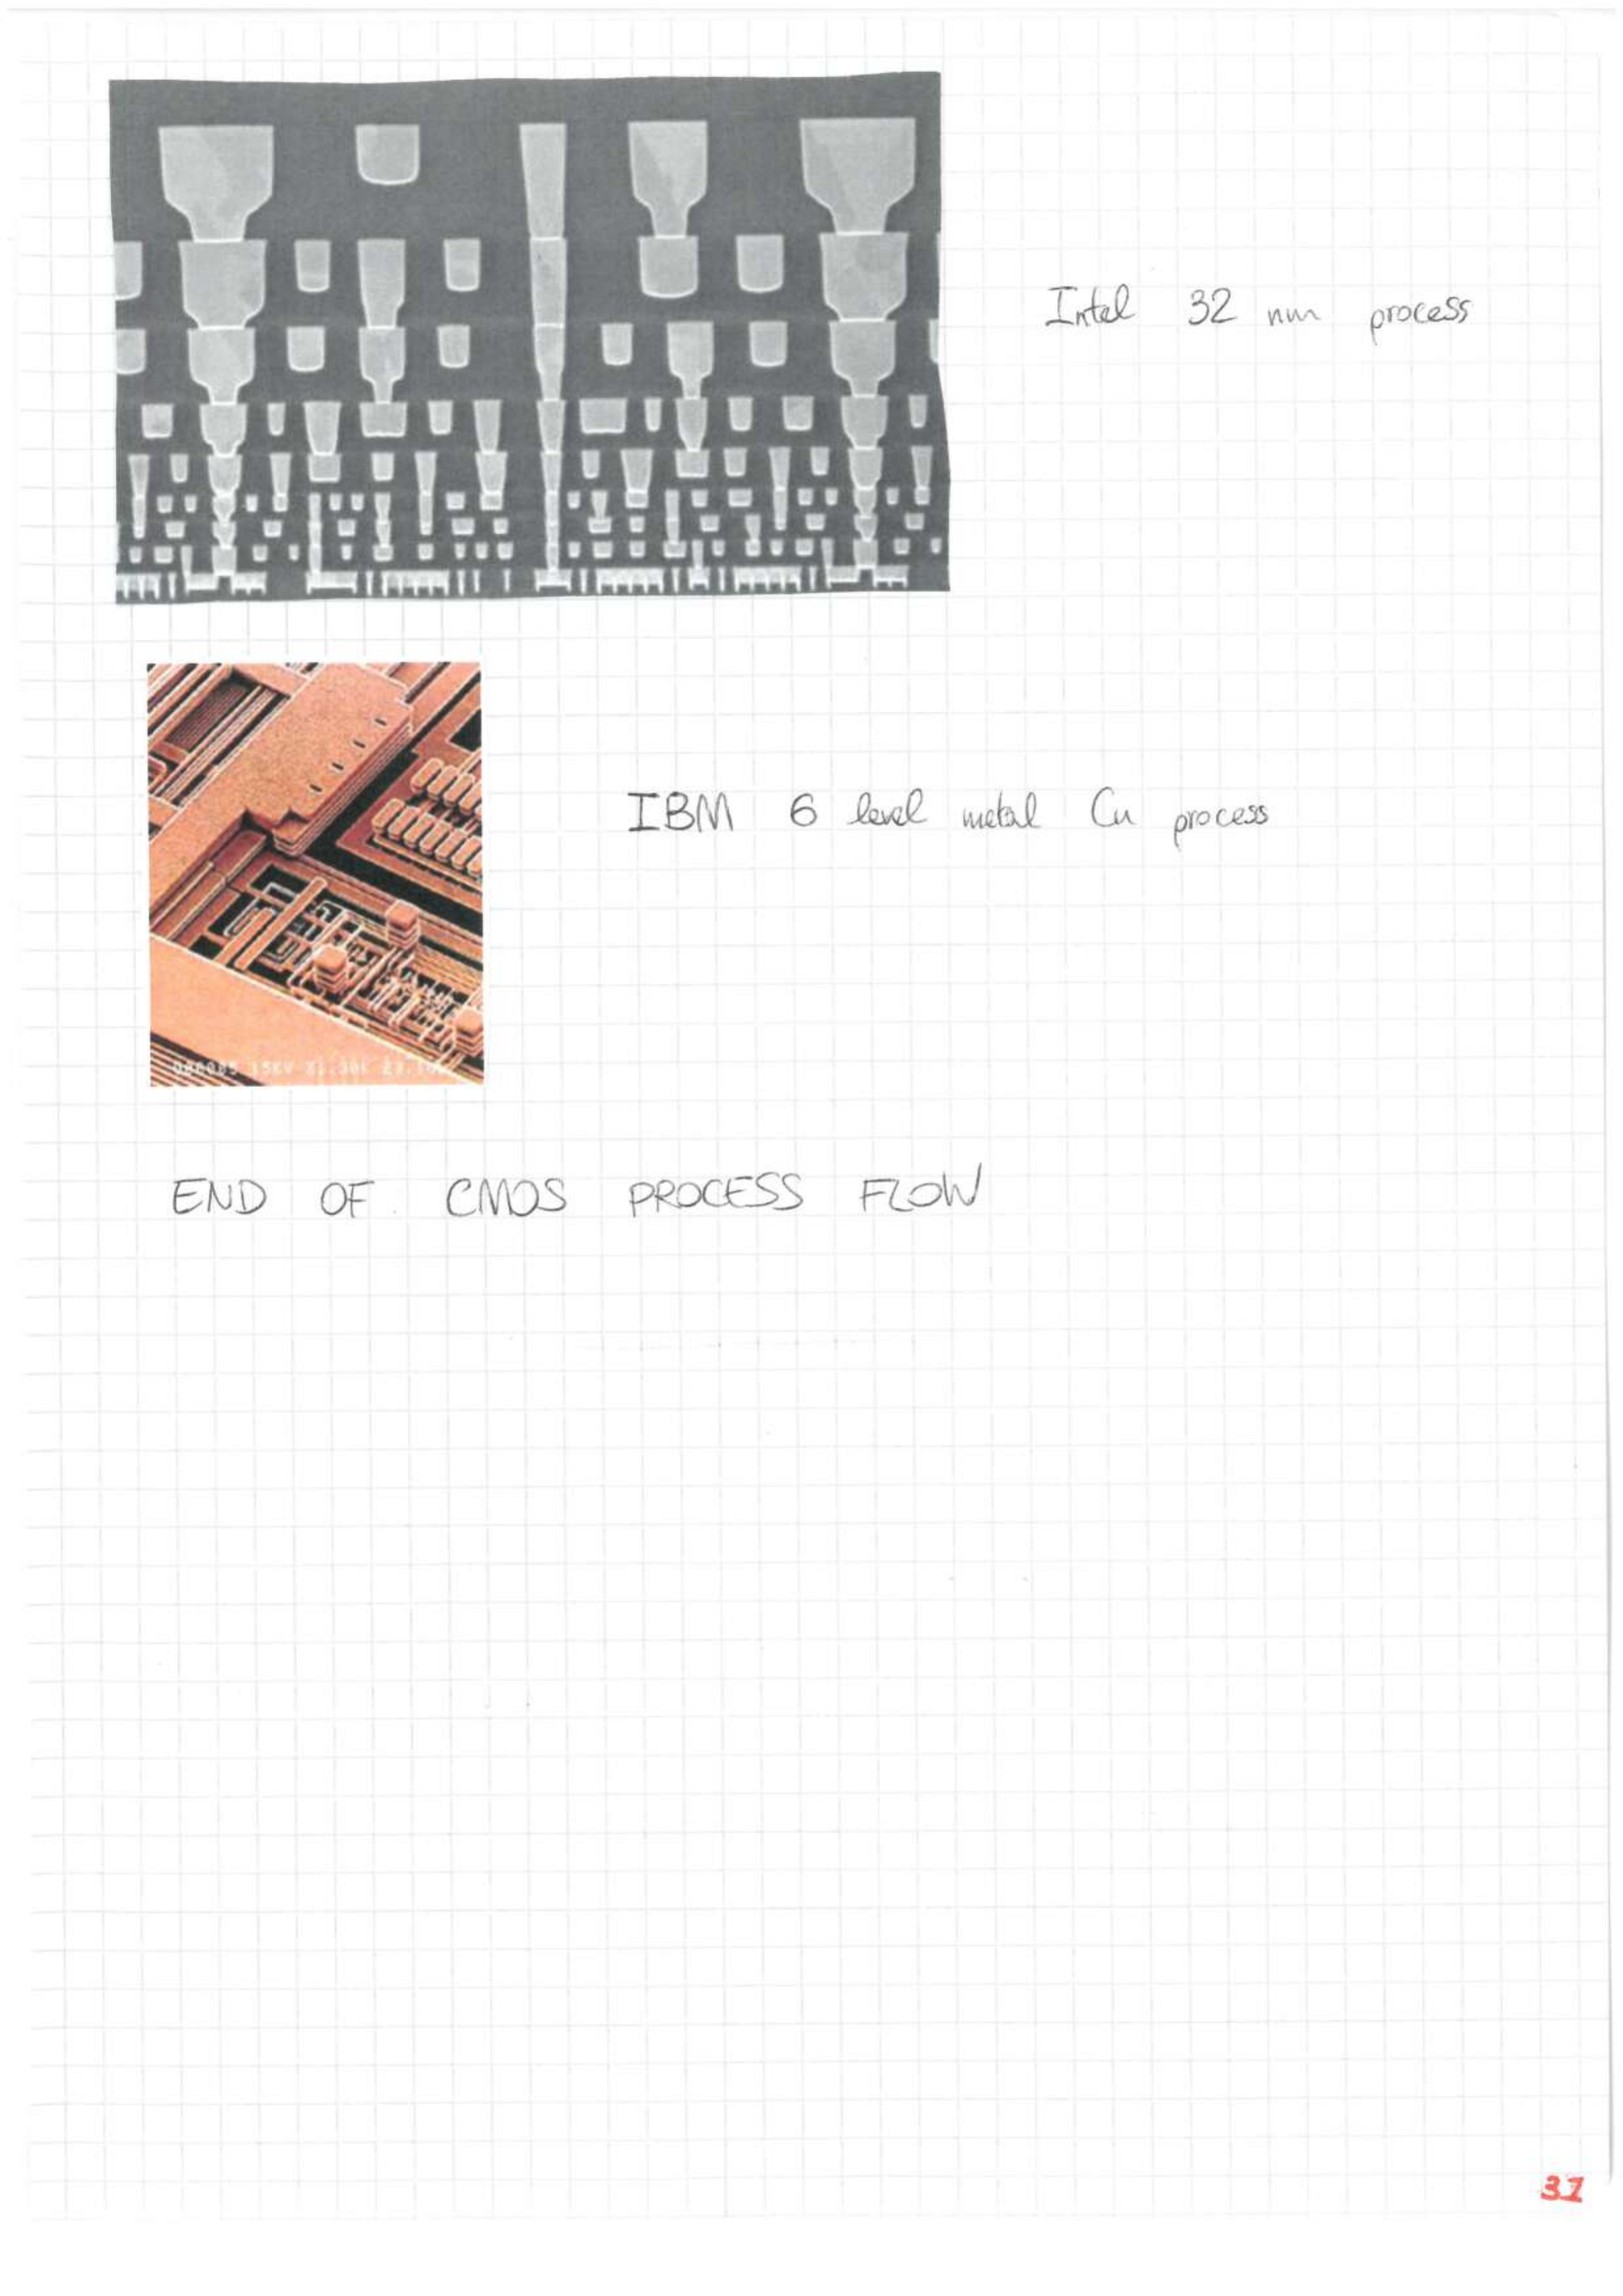 Intel 32 nm process
IBM 6 level metal Cu process
15KV
END OF CMOS PROCESS FLOW
31